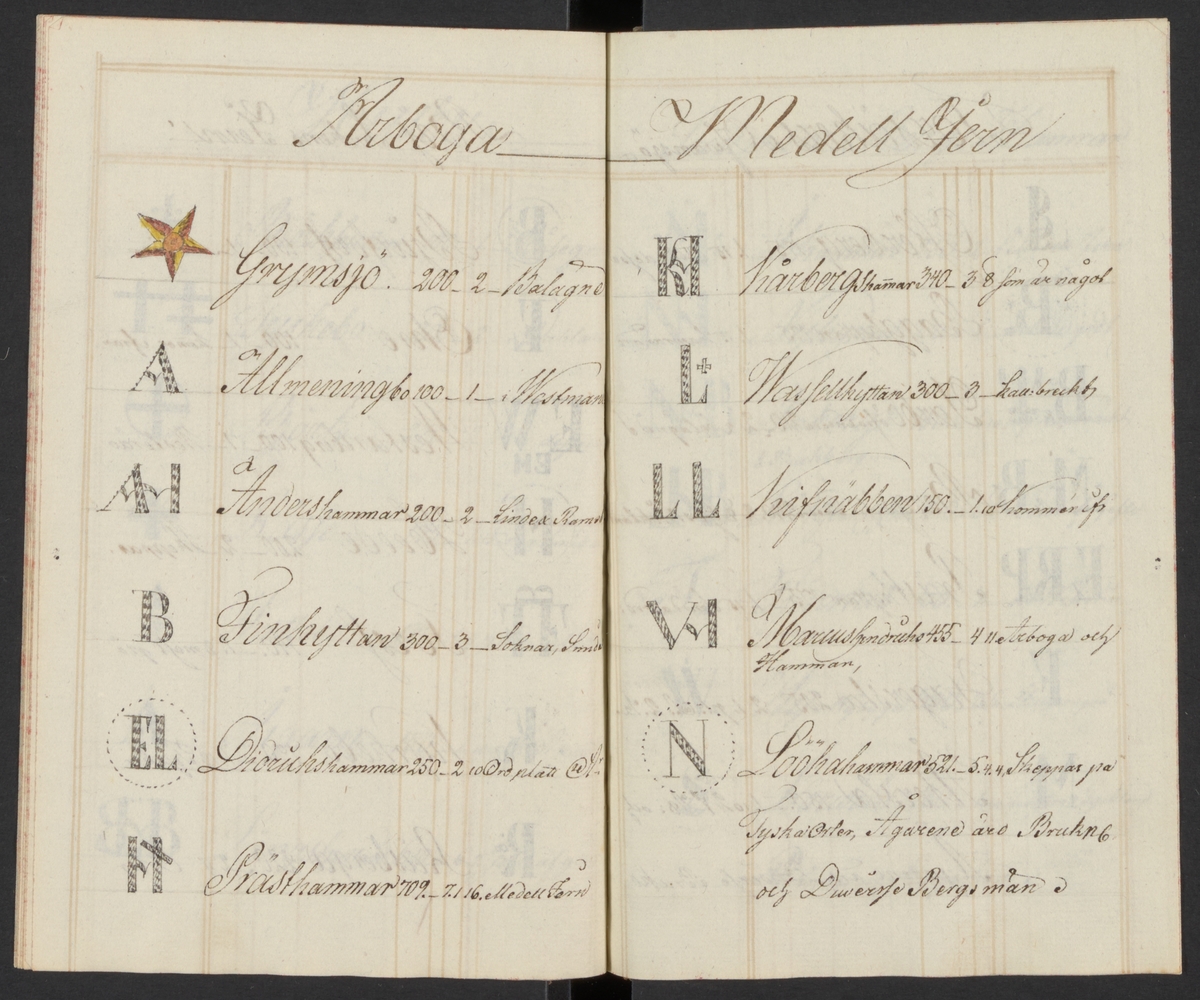 Arboga
Grymsjö. 200 - 2 - Balagne
A Allmeningbo 100 - 1 - Westman
AH Andershammar 200 - 2 - Lindex Rams
B Finhyttan 300 - 3 - Soknar,
EL Didrukshammar 250 - 2 10 Ord plått
H Prästhammar 709. - 7.1 16. Medell Jern
Medell Jern
KH Kårbergshamar 340 - 3 8 som är något
L+ Wasselhyttan 300 - 3 -
LL Kifnäbben 150. - 1.10 kommer ifr
WH Marcus hindruhs 455 - 4 11 Arboga och
Hamman,
N Lööhahammar 521. - 5.4.4, Skeppas på
Tyska Orter, Ägarene äro Brukn
och Duverse Bergsmän